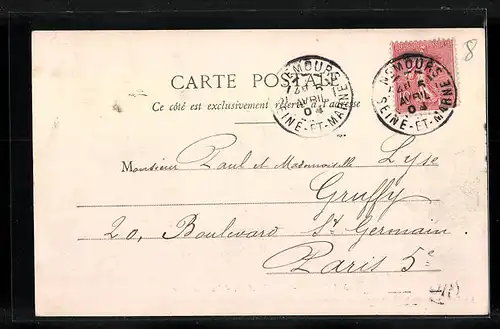 8
CARTE POSTALE
Ce côté est exclusivement réservé à l'adresse
NEMOURS
AVRIL
04
SEINE-ET-MARNE
NEMOURS
AVRIL
04
SEINE-ET-MARNE
Monsieur Paul et Mademoiselle Lyse
Gruffy
20, Boulevard St Germain
Paris 5e